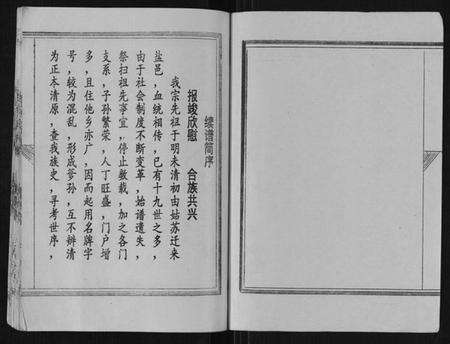 续谱简序
报竣欣慰　合族共兴
我宗先祖于明末清初由姑苏迁来
盐邑，血统相传，已有十九世之多，
由于社会制度不断变革，始谱遗失，
祭扫祖先事宜，停止数载，加之各门
支系，子孙繁荣，人丁旺盛，门户增
多，且住他乡亦广，因而起用名牌字
号，较为混乱，形成爹孙，互不辨清
为正本清源，查我族史，寻考世序，